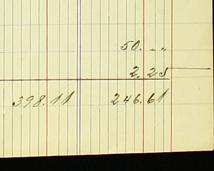 50. --
2.25
398.11 246.61